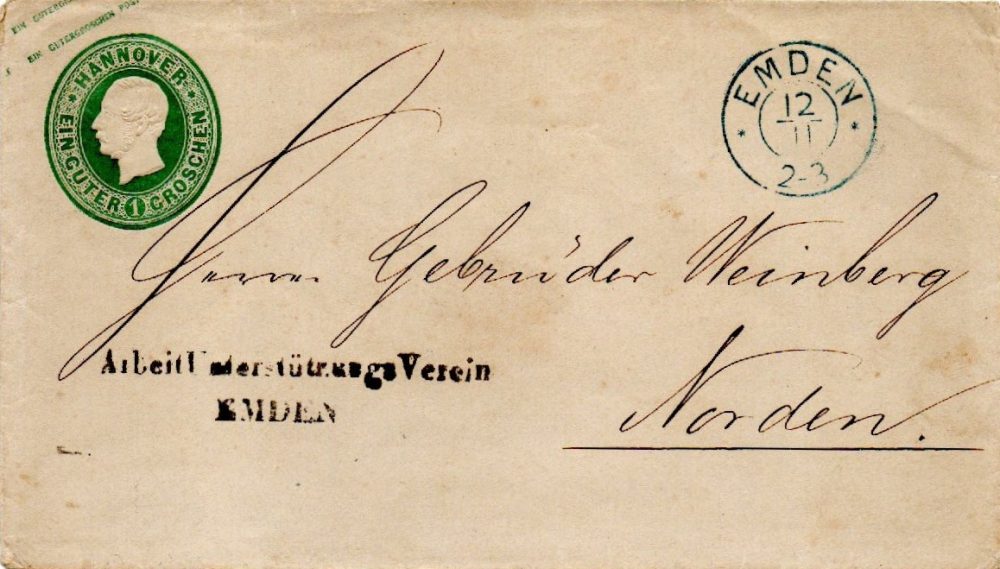 EIN GUTERGRO
EIN GUTERGROSCHEN POST
HANNOVER
EIN GUTER 1 GROSCHEN
EMDEN
12
11
2-3
Herren Gebrüder Weinberg
Norden.
Arbeit Unterstützungs Verein
EMDEN